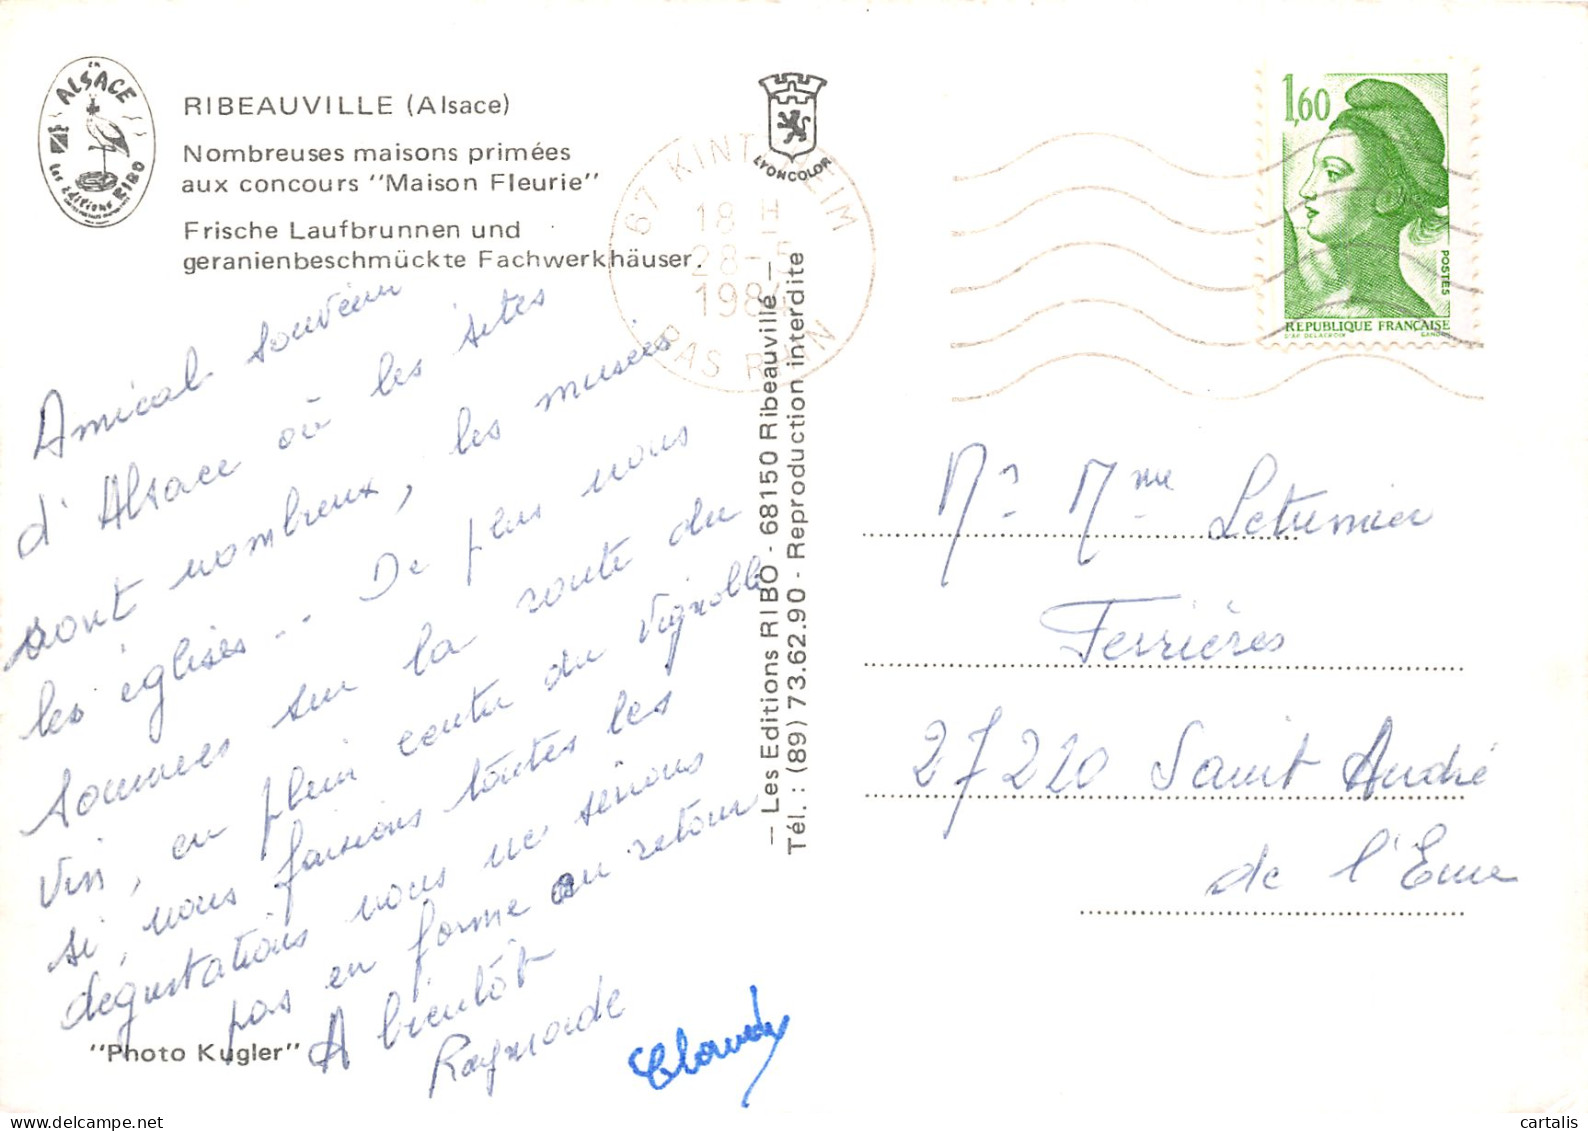 EN
ALSACE
Les Editions RIBO
RIBEAUVILLE (Alsace)
Nombreuses maisons primées
aux concours "Maison Fleurie"
Frische Laufbrunnen und
geranienbeschmückte Fachwerkhäuser.
LYONCOLOR
67 KINTZHEIM
18 H
28-5
1984
BAS RHIN
1,60
POSTES
REPUBLIQUE FRANÇAISE
D'AP. DELACROIX GANDON
Amical souvenir
d'Alsace où les sites
sont nombreux, les musées
les églises... De plus nous
sommes sur la route du
Vin, en plein centre du vignoble
si, nous faisions toutes les
dégustations nous ne serions
pas en forme au retour
A bientôt
Raymonde
Claude
"Photo Kugler"
— Les Editions RIBO - 68150 Ribeauvillé —
Tél. : (89) 73.62.90 - Reproduction interdite
Mr Mme Letumier
Ferrières
27220 Saint André
de l'Eure
cartalis